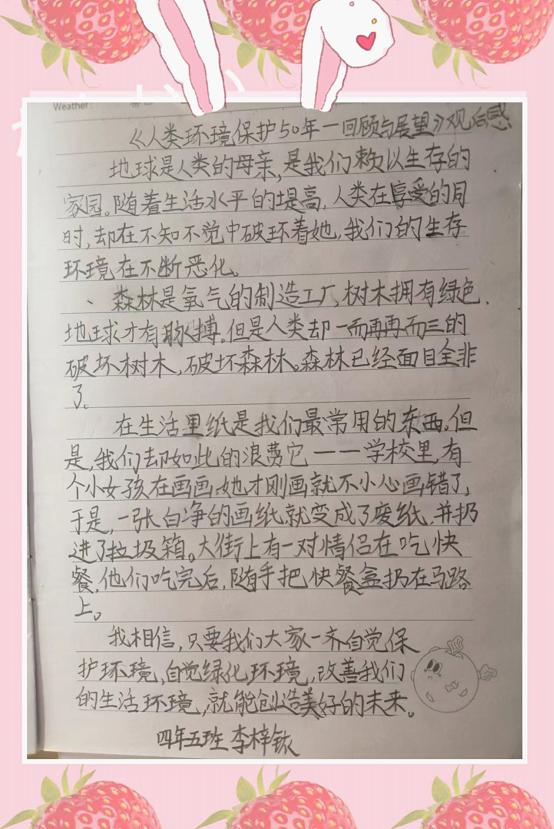 Weather:
《人类环境保护50年一回顾与展望》观后感
地球是人类的母亲,是我们赖以生存的
家园。随着生活水平的提高,人类在享受的同
时,却在不知不觉中破环着她,我们的生存
环境在不断恶化。
、森林是氧气的制造工厂,树木拥有绿色,
地球才有脉搏。但是人类却一而再再而三的
破坏树木,破坏森林。森林已经面目全非
了。
在生活里纸是我们最常用的东西。但
是,我们却如此的浪费它——学校里,有
个小女孩在画画,她才刚画就不小心画错了,
于是,一张白净的画纸就变成了废纸,并扔
进了垃圾箱。大街上有一对情侣在吃快
餐,他们吃完后,随手把快餐盒扔在马路
上。
我相信,只要我们大家一齐自觉保
护环境,自觉绿化环境,改善我们
的生活环境,就能创造美好的未来。
四年五班 李梓